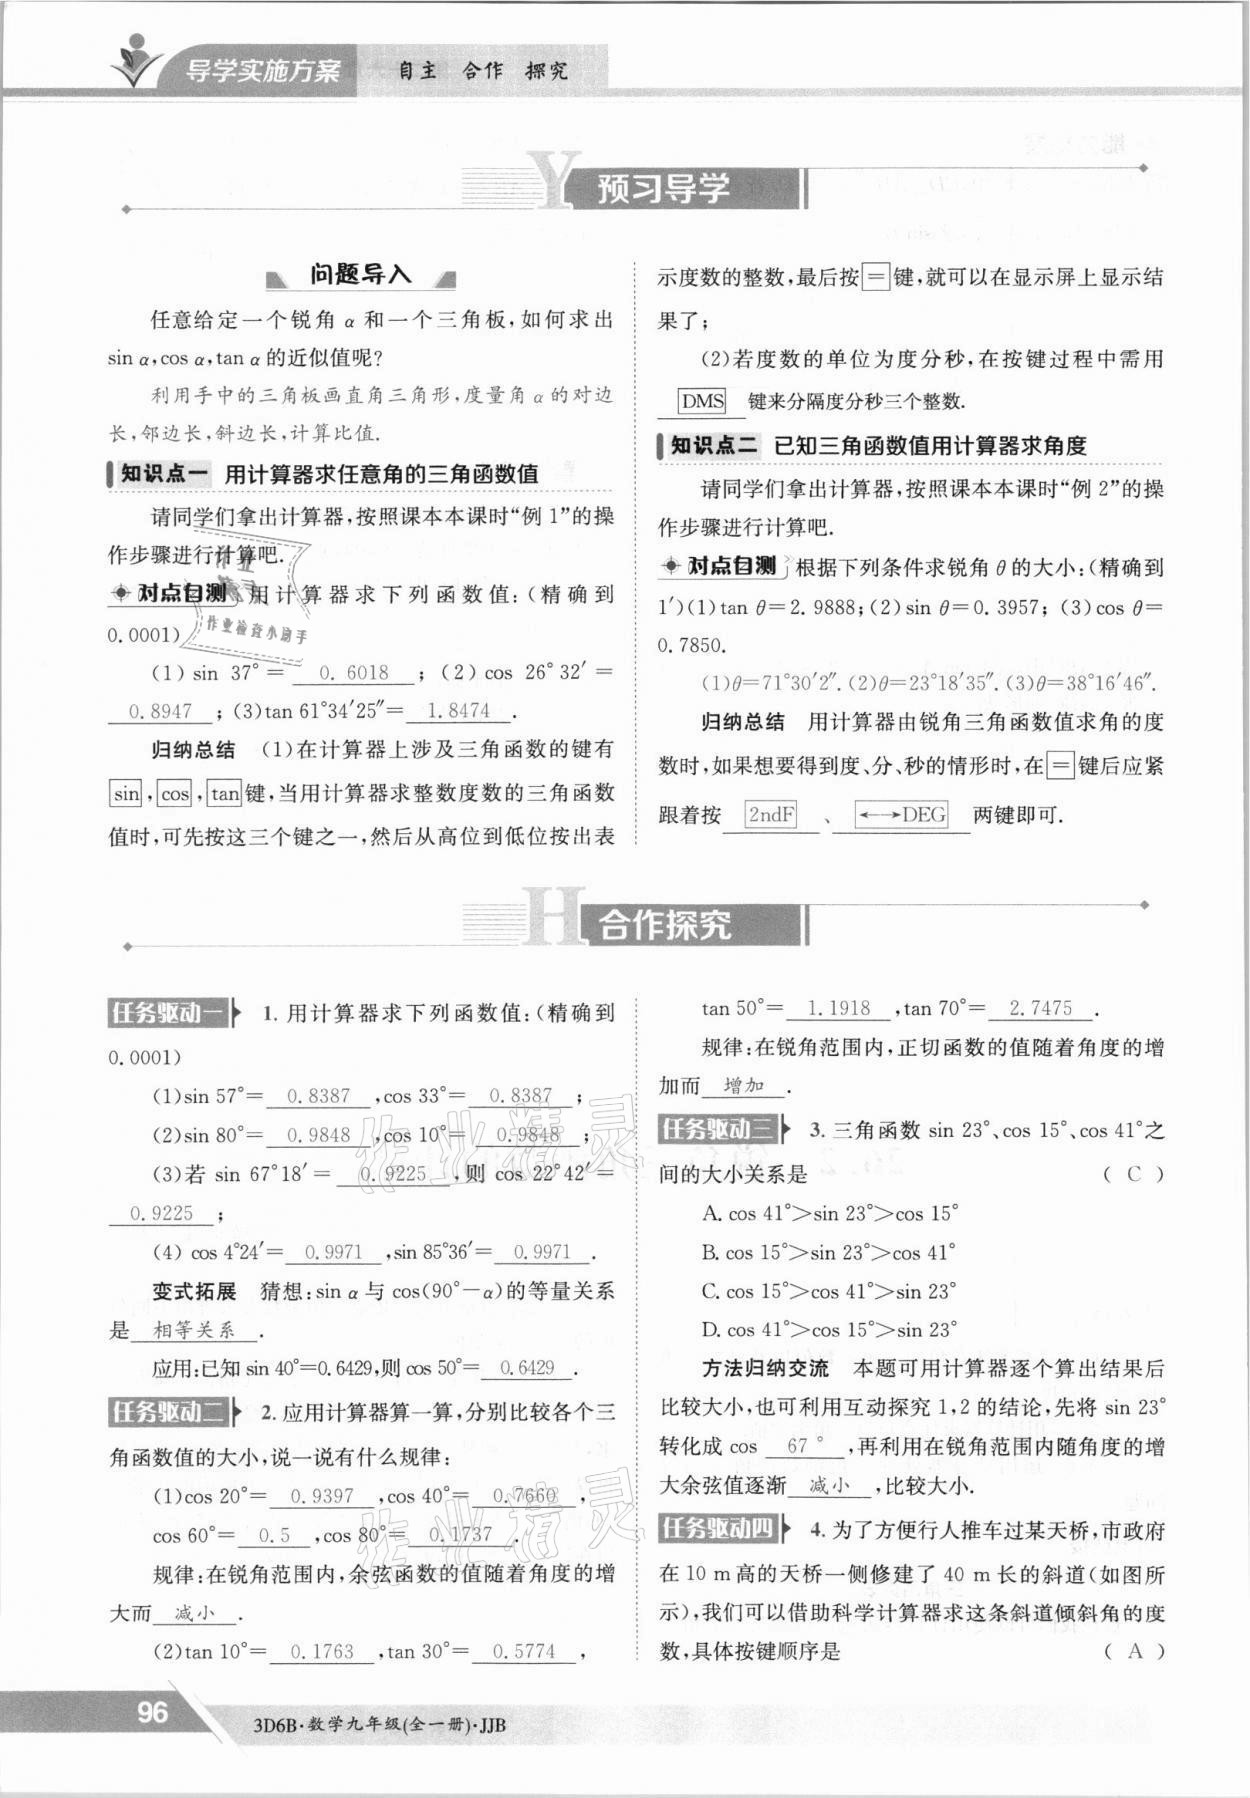 导学实施方案 自主 合作 探究
Y 预习导学
问题导入
任意给定一个锐角 α 和一个三角板,如何求出
sin α,cos α,tan α 的近似值呢?
利用手中的三角板画直角三角形,度量角 α 的对边
长,邻边长,斜边长,计算比值.
知识点一 用计算器求任意角的三角函数值
请同学们拿出计算器,按照课本本课时“例 1”的操
作步骤进行计算吧.
对点自测 用计算器求下列函数值:(精确到
0.0001)
(1) sin 37°= 0.6018 ; (2) cos 26°32′=
0.8947 ; (3)tan 61°34′25″= 1.8474 .
归纳总结 (1)在计算器上涉及三角函数的键有
sin,cos,tan键,当用计算器求整数度数的三角函数
值时,可先按这三个键之一,然后从高位到低位按出表
示度数的整数,最后按=键,就可以在显示屏上显示结
果了;
(2)若度数的单位为度分秒,在按键过程中需用
DMS 键来分隔度分秒三个整数.
知识点二 已知三角函数值用计算器求角度
请同学们拿出计算器,按照课本本课时“例 2”的操
作步骤进行计算吧.
对点自测 根据下列条件求锐角 θ 的大小:(精确到
1′)(1)tan θ=2.9888;(2)sin θ=0.3957;(3)cos θ=
0.7850.
(1)θ=71°30′2″.(2)θ=23°18′35″.(3)θ=38°16′46″.
归纳总结 用计算器由锐角三角函数值求角的度
数时,如果想要得到度、分、秒的情形时,在=键后应紧
跟着按 2ndF 、 ←→DEG 两键即可.
H 合作探究
任务驱动一 1.用计算器求下列函数值:(精确到
0.0001)
(1)sin 57°= 0.8387 ,cos 33°= 0.8387 ;
(2)sin 80°= 0.9848 ,cos 10°= 0.9848 ;
(3)若 sin 67°18′= 0.9225 ,则 cos 22°42′=
0.9225 ;
(4) cos 4°24′= 0.9971 ,sin 85°36′= 0.9971 .
变式拓展 猜想:sin α 与 cos(90°-α)的等量关系
是 相等关系 .
应用:已知 sin 40°=0.6429,则 cos 50°= 0.6429 .
任务驱动二 2.应用计算器算一算,分别比较各个三
角函数值的大小,说一说有什么规律:
(1)cos 20°= 0.9397 ,cos 40°= 0.7660 ,
cos 60°= 0.5 ,cos 80°= 0.1737 .
规律:在锐角范围内,余弦函数的值随着角度的增
大而 减小 .
(2)tan 10°= 0.1763 ,tan 30°= 0.5774 ,
tan 50°= 1.1918 ,tan 70°= 2.7475 .
规律:在锐角范围内,正切函数的值随着角度的增
加而 增加 .
任务驱动三 3.三角函数 sin 23°、cos 15°、cos 41°之
间的大小关系是 ( C )
A. cos 41°>sin 23°>cos 15°
B. cos 15°>sin 23°>cos 41°
C. cos 15°>cos 41°>sin 23°
D. cos 41°>cos 15°>sin 23°
方法归纳交流 本题可用计算器逐个算出结果后
比较大小,也可利用互动探究 1,2 的结论,先将 sin 23°
转化成 cos 67° ,再利用在锐角范围内随角度的增
大余弦值逐渐 减小 ,比较大小.
任务驱动四 4.为了方便行人推车过某天桥,市政府
在 10 m 高的天桥一侧修建了 40 m 长的斜道(如图所
示),我们可以借助科学计算器求这条斜道倾斜角的度
数,具体按键顺序是 ( A )
96 3D6B·数学九年级(全一册)·JJB
作业精灵
作业精灵
作业检查小助手